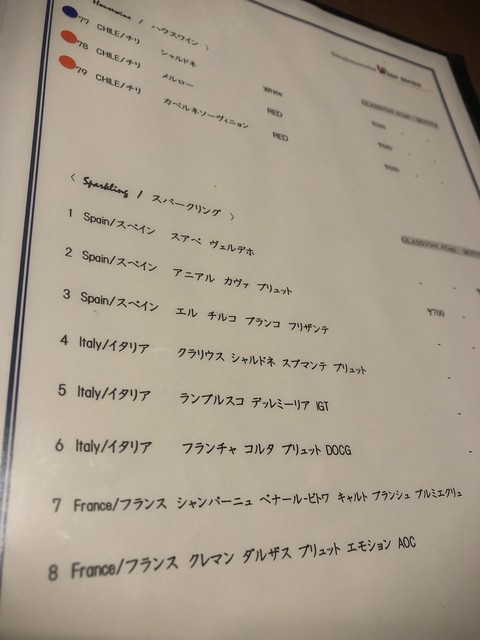 Housewine / ハウスワイン 〉
77 CHILE/チリ シャルドネ White
78 CHILE/チリ メルロー RED
79 CHILE/チリ カベルネソーヴィニョン RED
〈 Sparkling / スパークリング 〉
1 Spain/スペイン スアベ ヴェルデホ
2 Spain/スペイン アニアル カヴァ ブリュット
3 Spain/スペイン エル チルコ ブランコ フリザンテ ¥700
4 Italy/イタリア クラリウス シャルドネ スプマンテ ブリュット -
5 Italy/イタリア ランブルスコ デッレミーリア IGT -
6 Italy/イタリア フランチャ コルタ ブリュット DOCG -
7 France/フランス シャンパーニュ ペナール-ピトワ キャルト ブランシュ プルミエクリュ
8 France/フランス クレマン ダルザス ブリュット エモション AOC